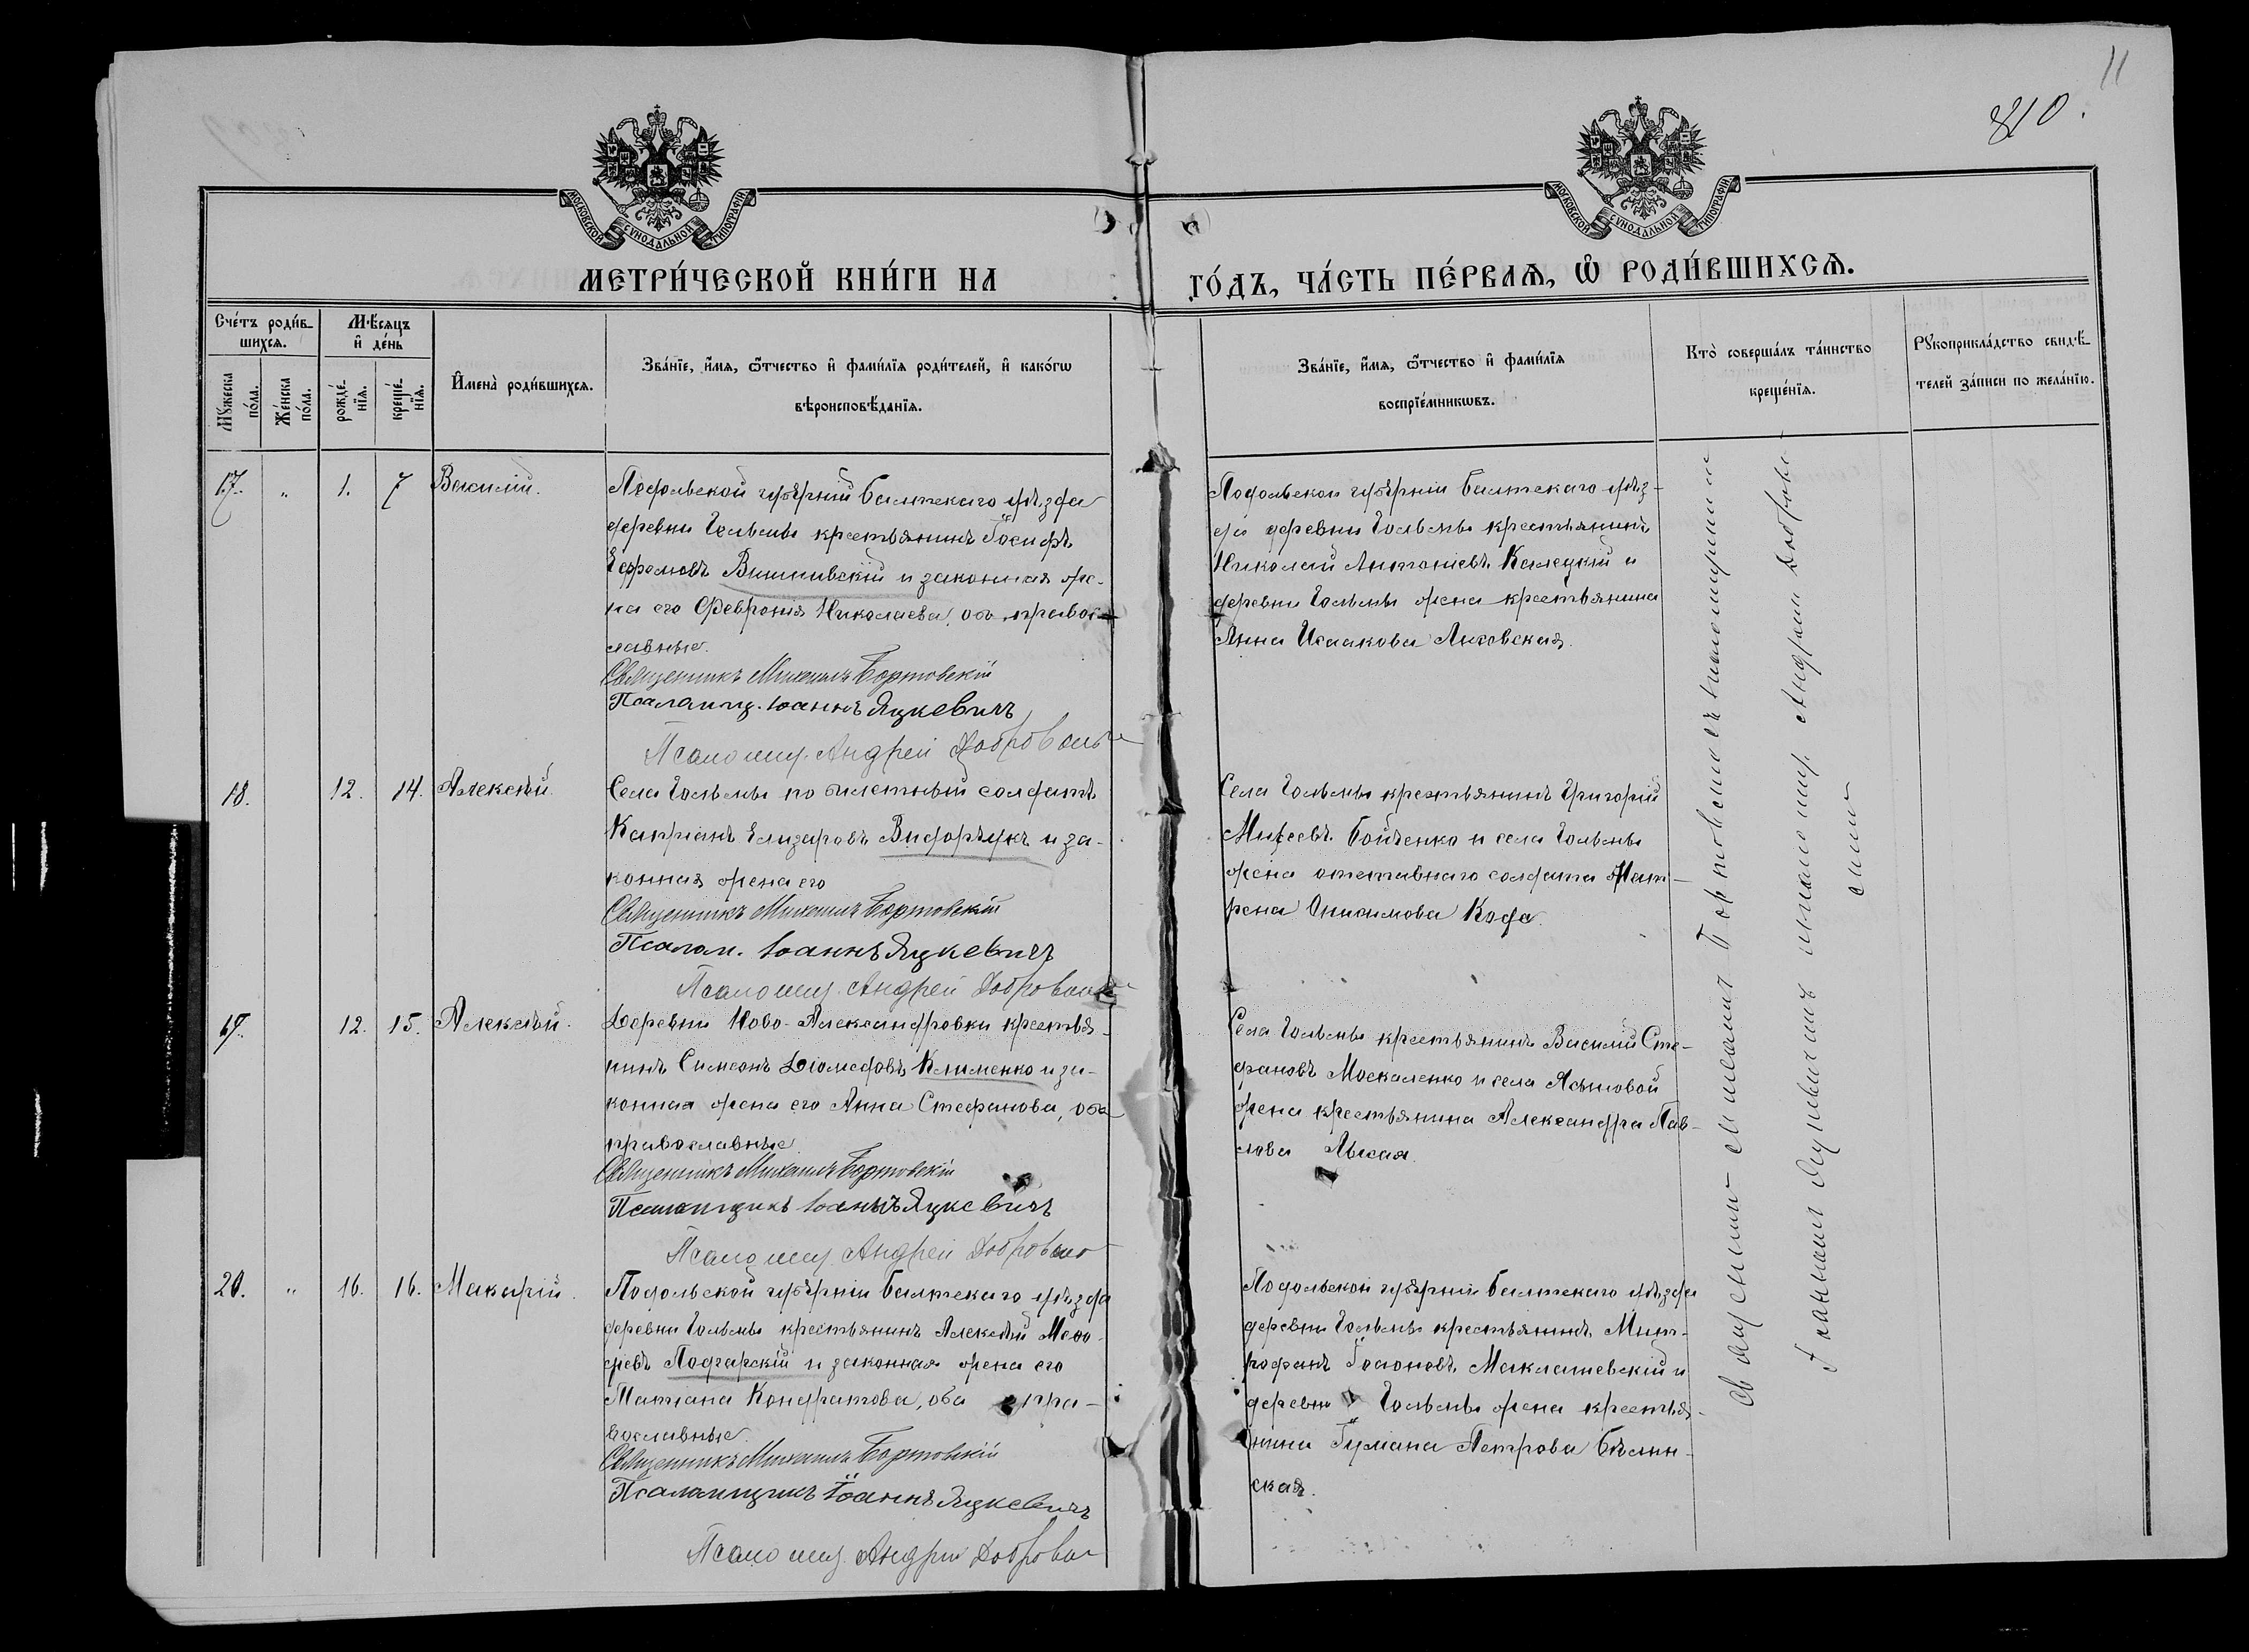 11
810.
МОСКОВСКОЙ СѴНОДАЛЬНОЙ ТИПОГРАФІИ
МОСКОВСКОЙ СѴНОДАЛЬНОЙ ТИПОГРАФІИ
МЕТРИ́ЧЕСКОЙ КНИ́ГИ НА
ГО́ДЪ, ЧА́СТЬ ПЕ́РВАѦ, Ѿ РОДИ́ВШИХСѦ.
Сче́тъ роди́в-
шихсѧ.
Мѣ́сѧцъ
и҆ де́нь
Мꙋ́жеска
по́ла.
Же́нска
по́ла.
рожде́-
нїѧ.
креще́-
нїѧ.
И҆мена̀ роди́вшихсѧ.
Зва́нїе, и҆́мѧ, ѻ҆́тчество и҆ фами́лїѧ роди́телей, и҆ како́гѡ
вѣроисповѣ́данїѧ.
Зва́нїе, и҆́мѧ, ѻ҆́тчество и҆ фами́лїѧ
воспрїе́мникѡвъ.
Кто̀ соверша́лъ та́инство
креще́нїѧ.
Рꙋкоприкла́дство свидѣ́-
телей за́писи по жела́нїю.
17. " 1. 7 Василій.
Подольской губерніи Балтскаго уѣзда
деревни Гольмы крестьянинъ Іосифъ
Ефремовъ Вишневскій и законная же-
на его Феврония Николаева, оба правос-
лавные.
Священникъ Михаилъ Бортовскій
Псаломщ. Іоаннъ Яцкевичъ
Псаломщ. Андрей Доброволь
Подольской губерніи Балтскаго уѣз-
да деревни Гольмы крестьянинъ
Николай Антоніевъ Калецкій и
деревни Гольмы жена крестьянина
Анна Исаакова Лиховская.
18. 12. 14. Алексѣй.
Села Гольмы по билетный солдатъ
Капріанъ Елизаровъ Вифорѣукъ и за-
конная жена его
Священникъ Михаилъ Бортовскій
Псалом. Іоаннъ Яцкевичъ
Псаломщ. Андрей Доброволь
Села Гольмы крестьянинъ Григорій
Моѵсеевъ Бойченко и села Гольмы
жена отставнаго солдата Мат-
рена Онисимова Кода.
19. 12. 15. Алексѣй.
Деревни Ново-Александровки крестья-
нинъ Симеонъ Діомидовъ Клименко и за-
конная жена его Анна Стефанова, оба
православные
Священникъ Михаилъ Бортовскій
Псаломщикъ Іоаннъ Яцкевичъ
Псаломщ. Андрей Доброволь
Села Гольмы крестьянинъ Василій Сте-
фановъ Москаленко и села Ясѣновой
жена крестьянина Александра Пав-
лова Лысая.
20. " 16. 16. Макарій.
Подольской губерніи Балтскаго уѣзда
деревни Гольмы крестьянинъ Алексѣй Меѳо-
діевъ Подгарскій и законная жена его
Татіана Кондратова, оба пра-
вославные
Священникъ Михаилъ Бортовскій
Псаломщикъ Іоаннъ Яцкевичъ
Псаломщ. Андрей Доброво
Подольской губерніи Балтскаго уѣзда
деревни Гольмы крестьянинъ Мит-
рофанъ Іосифовъ Маклашевскій и
деревни Гольмы жена крестья-
нина Іуліана Петрова Бѣлин-
ская.
Священникъ Михаилъ Бортовскій съ псаломщиками
Іоанномъ Яцкевичемъ и псаломщ. Андреемъ Доброволь-